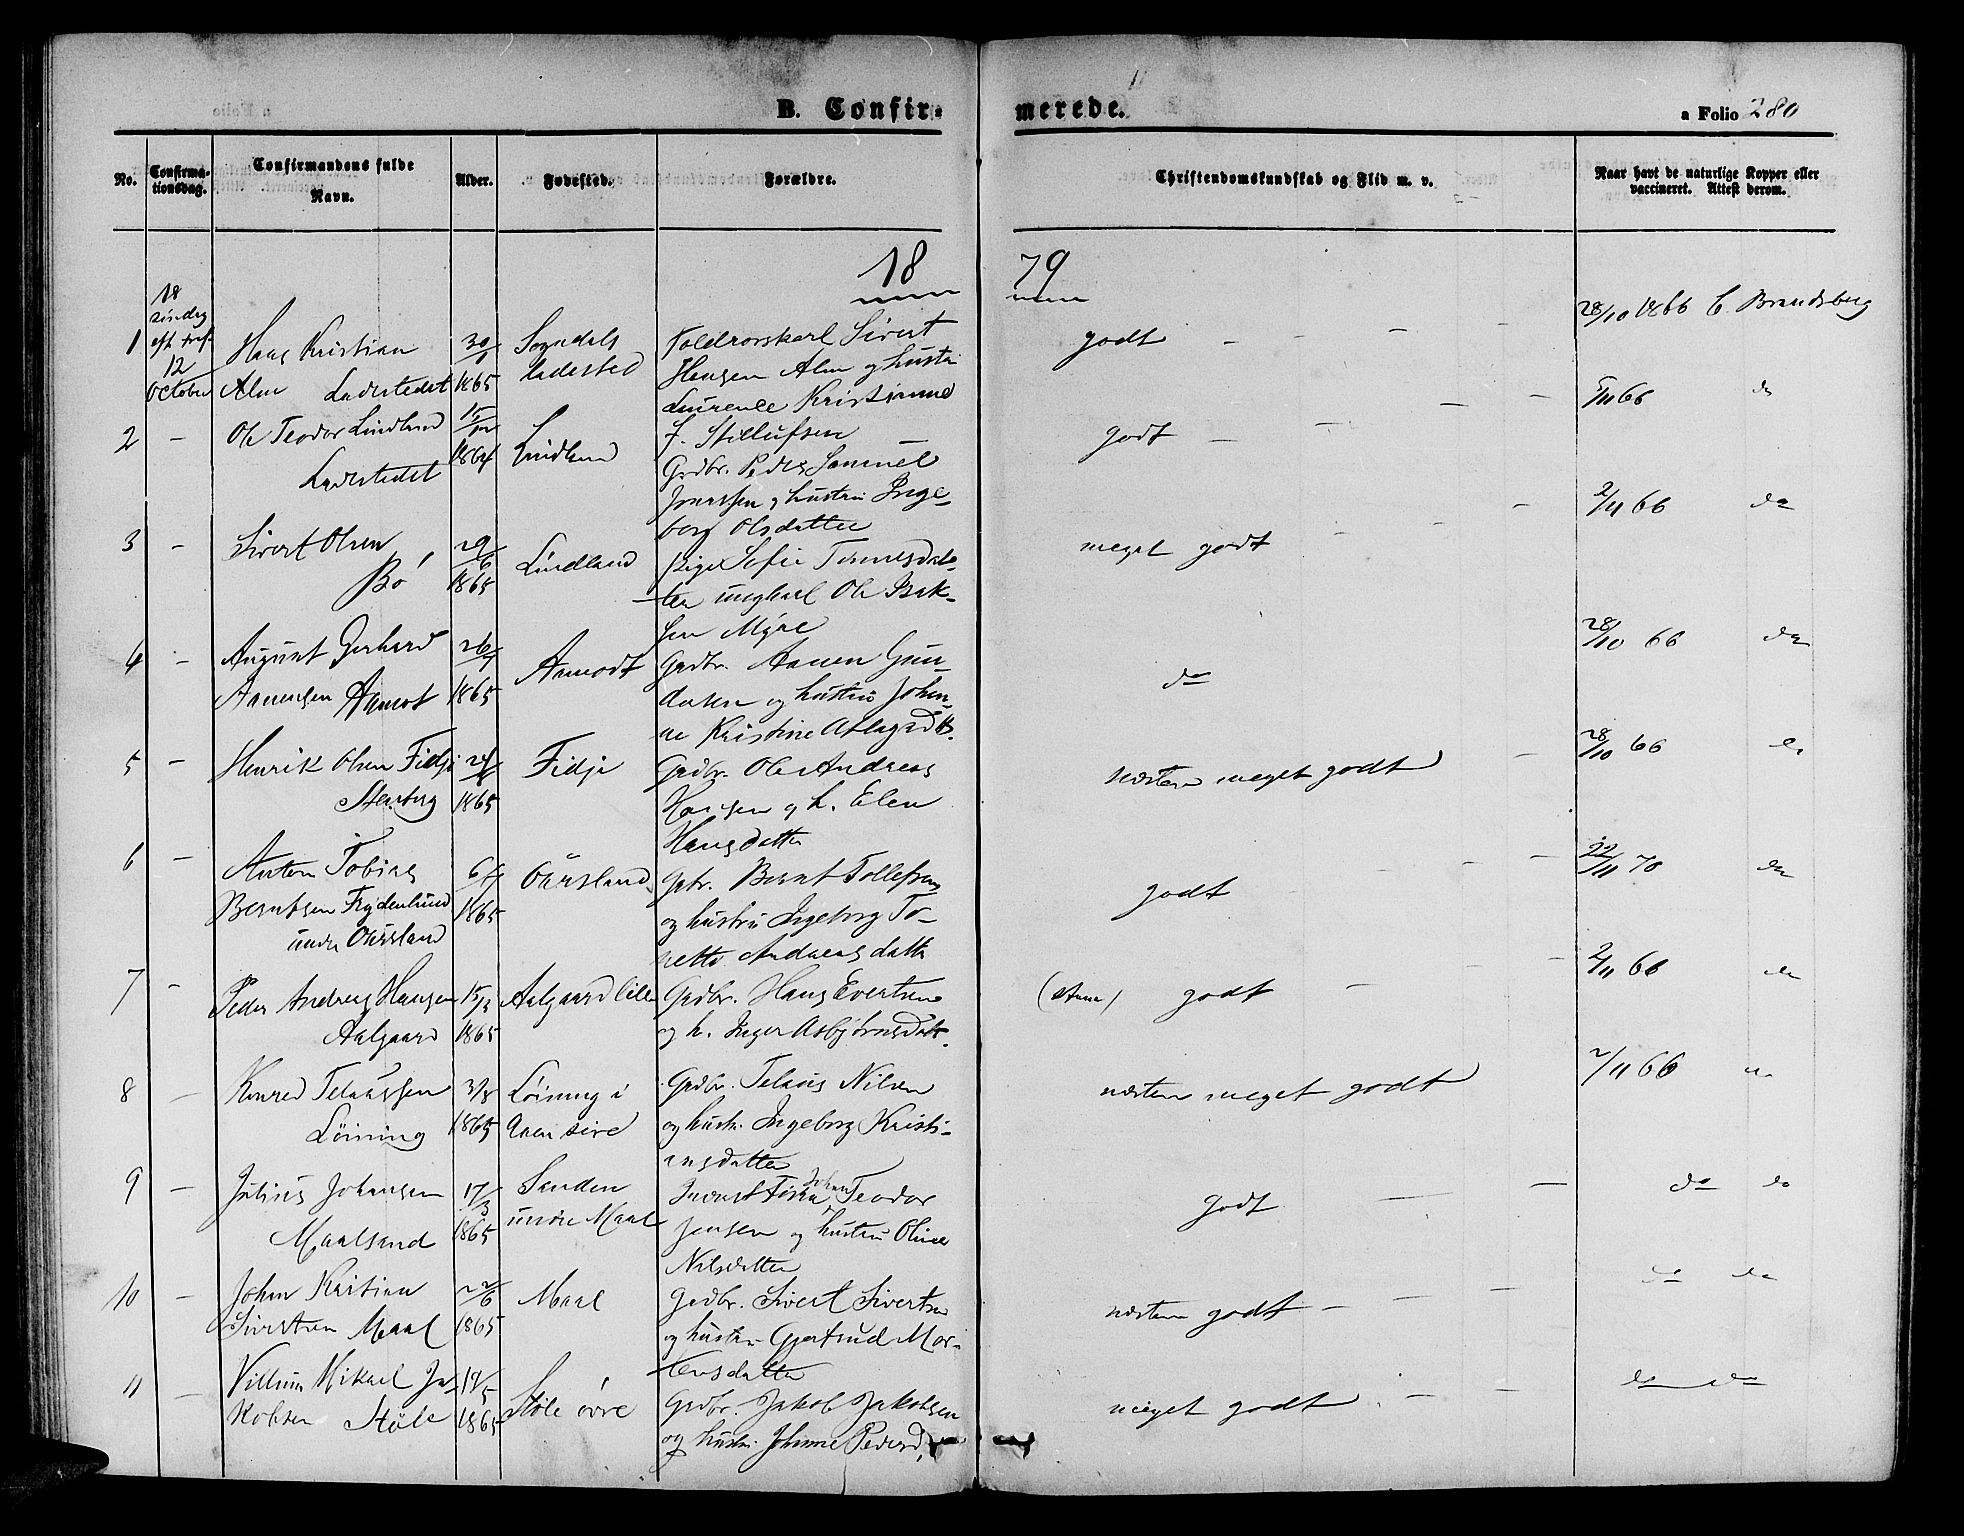 B. Confir-
merede.
a Folio 280
No.
Confirma-
tionsdag.
Confirmandens fulde
Navn.
Alder.
Fødested.
Forældre.
Christendomskundskab og Flid m. v.
Naar havt de naturlige Kopper eller
vaccineret. Attest derom.
18
79
1
18
søndag
eft. tref.
12
October
Hans Kristian
Alm Ladestedet
30/1
1865
Sogndals
ladested
Sivert
Hansen Alm og hustru
Laurense Kristianne
J. Stellufsen
godt - - -
28/10 1866 C. Brandsberg
2 -
Ole Teodor Lindland
Ladestedet
15/12
1864
Lindland
Grdbr. Peder Samuel
Jonassen og hustru Inge-
borg Olsdatter
godt - - - -
5/11 66 do
3 -
Sivert Olsen
Bø
29/6
1865
Lindland
Pige Sofie Tønnesdat-
ter ungkarl Ole Isak-
sen Myre
meget godt - - -
2/11 66 do
4 -
August Gerhard
Aanensen Aamot
26/7
1865
Aamodt
Grdbr. Aanen Gun-
dersen og hustru Johan-
ne Kristine Aslagsdtr.
do
28/10 66 do
5 -
Henrik Olsen Fidje
Stenberg
1865
Fidje
Grdbr. Ole Andreas
Hansen og h. Elen
Hansdatter
næsten meget godt -
28/10 66 do
6 -
Anton Tobias
Berntsen Frydenlund
undr Ouusland
6/7
1865
Grbr. Bernt Tollefsen
og hustru Ingeborg To-
nette Andreasdatter
godt - - -
22/11 70 do
7 -
Peder Andreas Hansen
Aalgaard
15/3
1865
Aalgaard lille
Grdbr. Hans Evertsen
og h. Inger Asbjørnsdatr.
godt - - -
2/11 66 do
8 -
Konrad Telaussen
Løining
3/8
1865
Løining i
Aaensire
Grdbr. Telaus Nilsen
og hustr. Ingeborg Kristi-
ansdatter
næsten meget godt
2/11 66 do
9 -
Julius Johansen
Maalsand
17/3
1865
Sanden
undr Maal
Johan Teodor
Jensen og hustru Oline
Nilsdatter
godt - - -
do do
10 -
Johan Kristian
Sivertsen Maal
22/6
1865
Maal
Grdbr. Sivert Sivertsen
og hustru Gjertrud Mor-
tensdatter
næsten godt - - - -
do do
11 -
Villum Mikael Ja-
kobsen Støle
19/5
1865
Støle øvre
Grdbr. Jakob Jakobsen
og hustr. Johanne Pedersd.
meget godt - -
do do